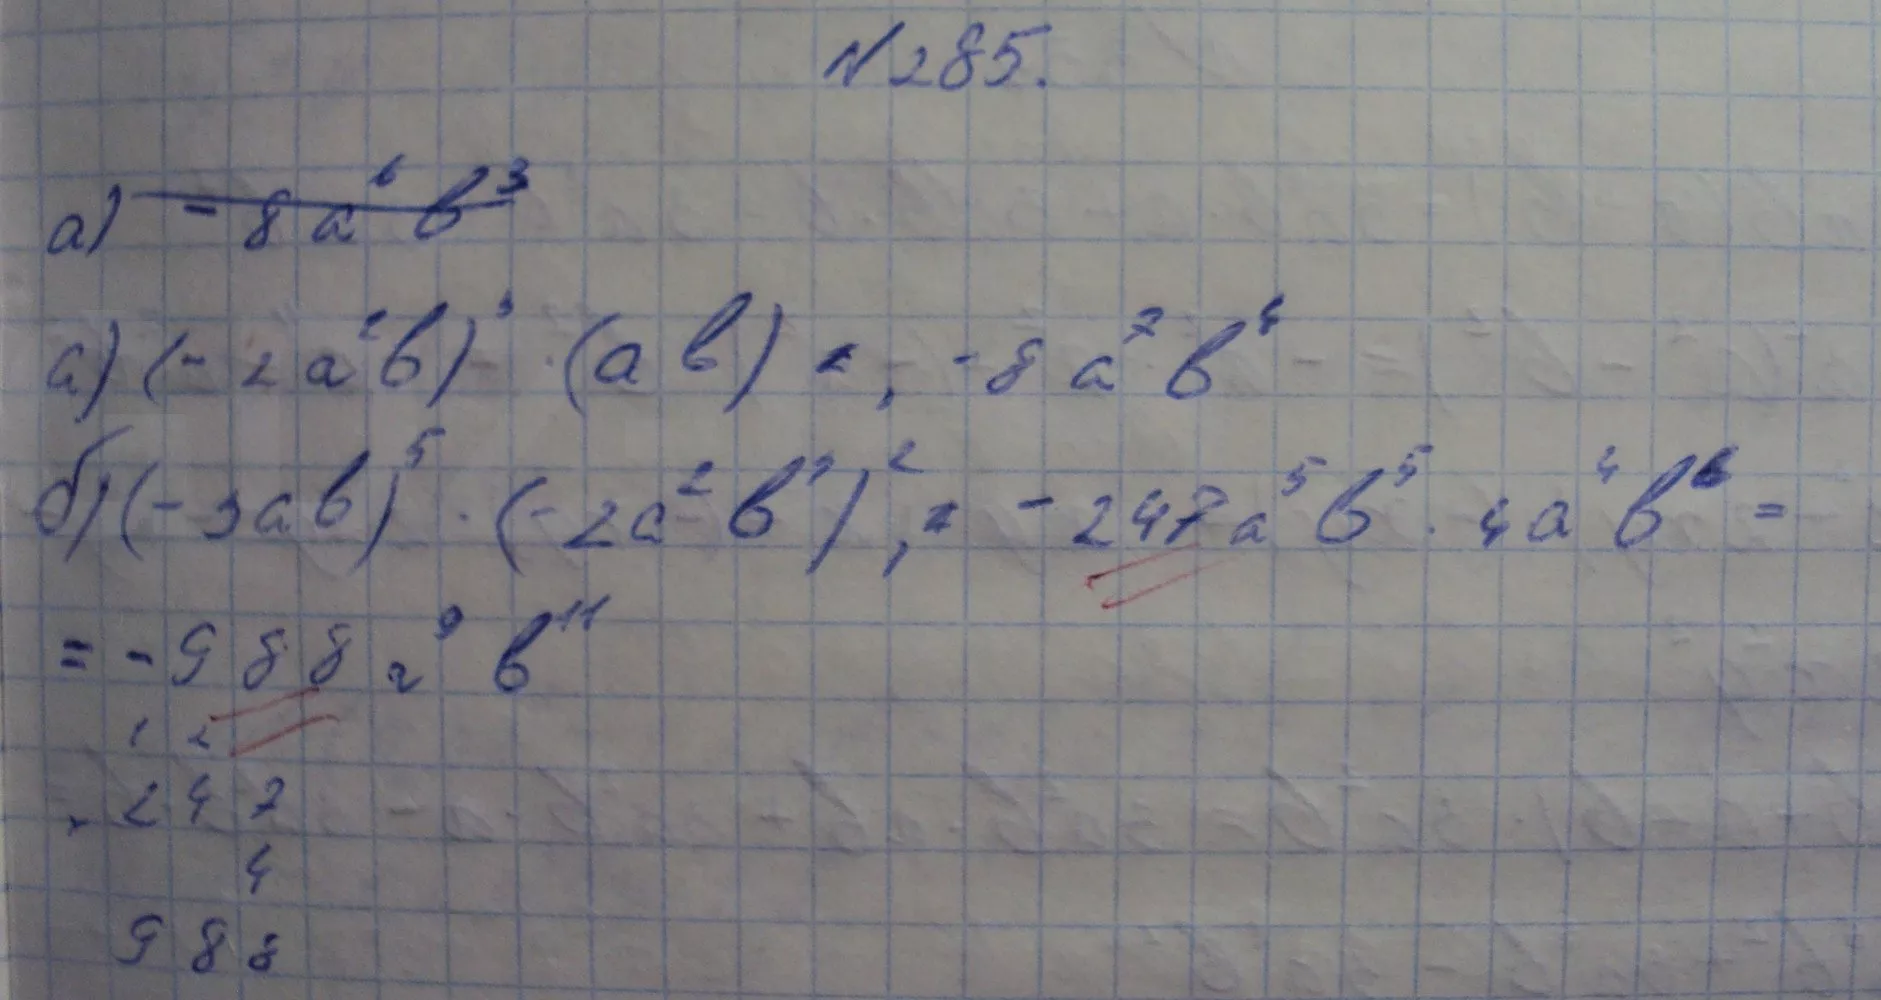 №285.
а) -8a⁶b³
а) (-2a²b)³ · (ab) = -8a⁷b⁴
б) (-3ab)⁵ · (-2a²b³)² = -247a⁵b⁵ · 4a⁴b⁶ =
= -988a⁹b¹¹
1 2
× 247
4
988